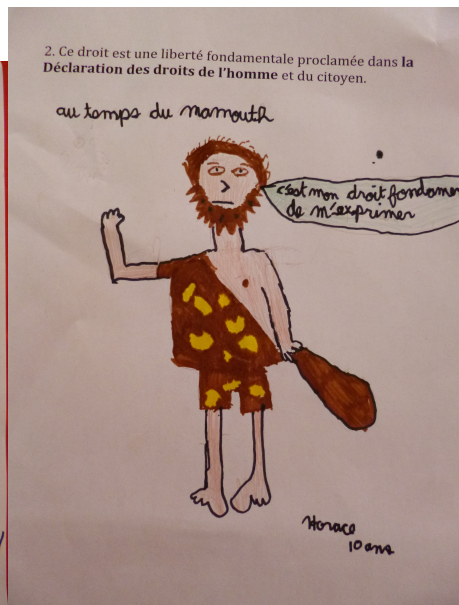 2. Ce droit est une liberté fondamentale proclamée dans la
Déclaration des droits de l'homme et du citoyen.
au temps du mamouth
c'est mon droit fondamen
de m'exprimer
Horace
10 ans